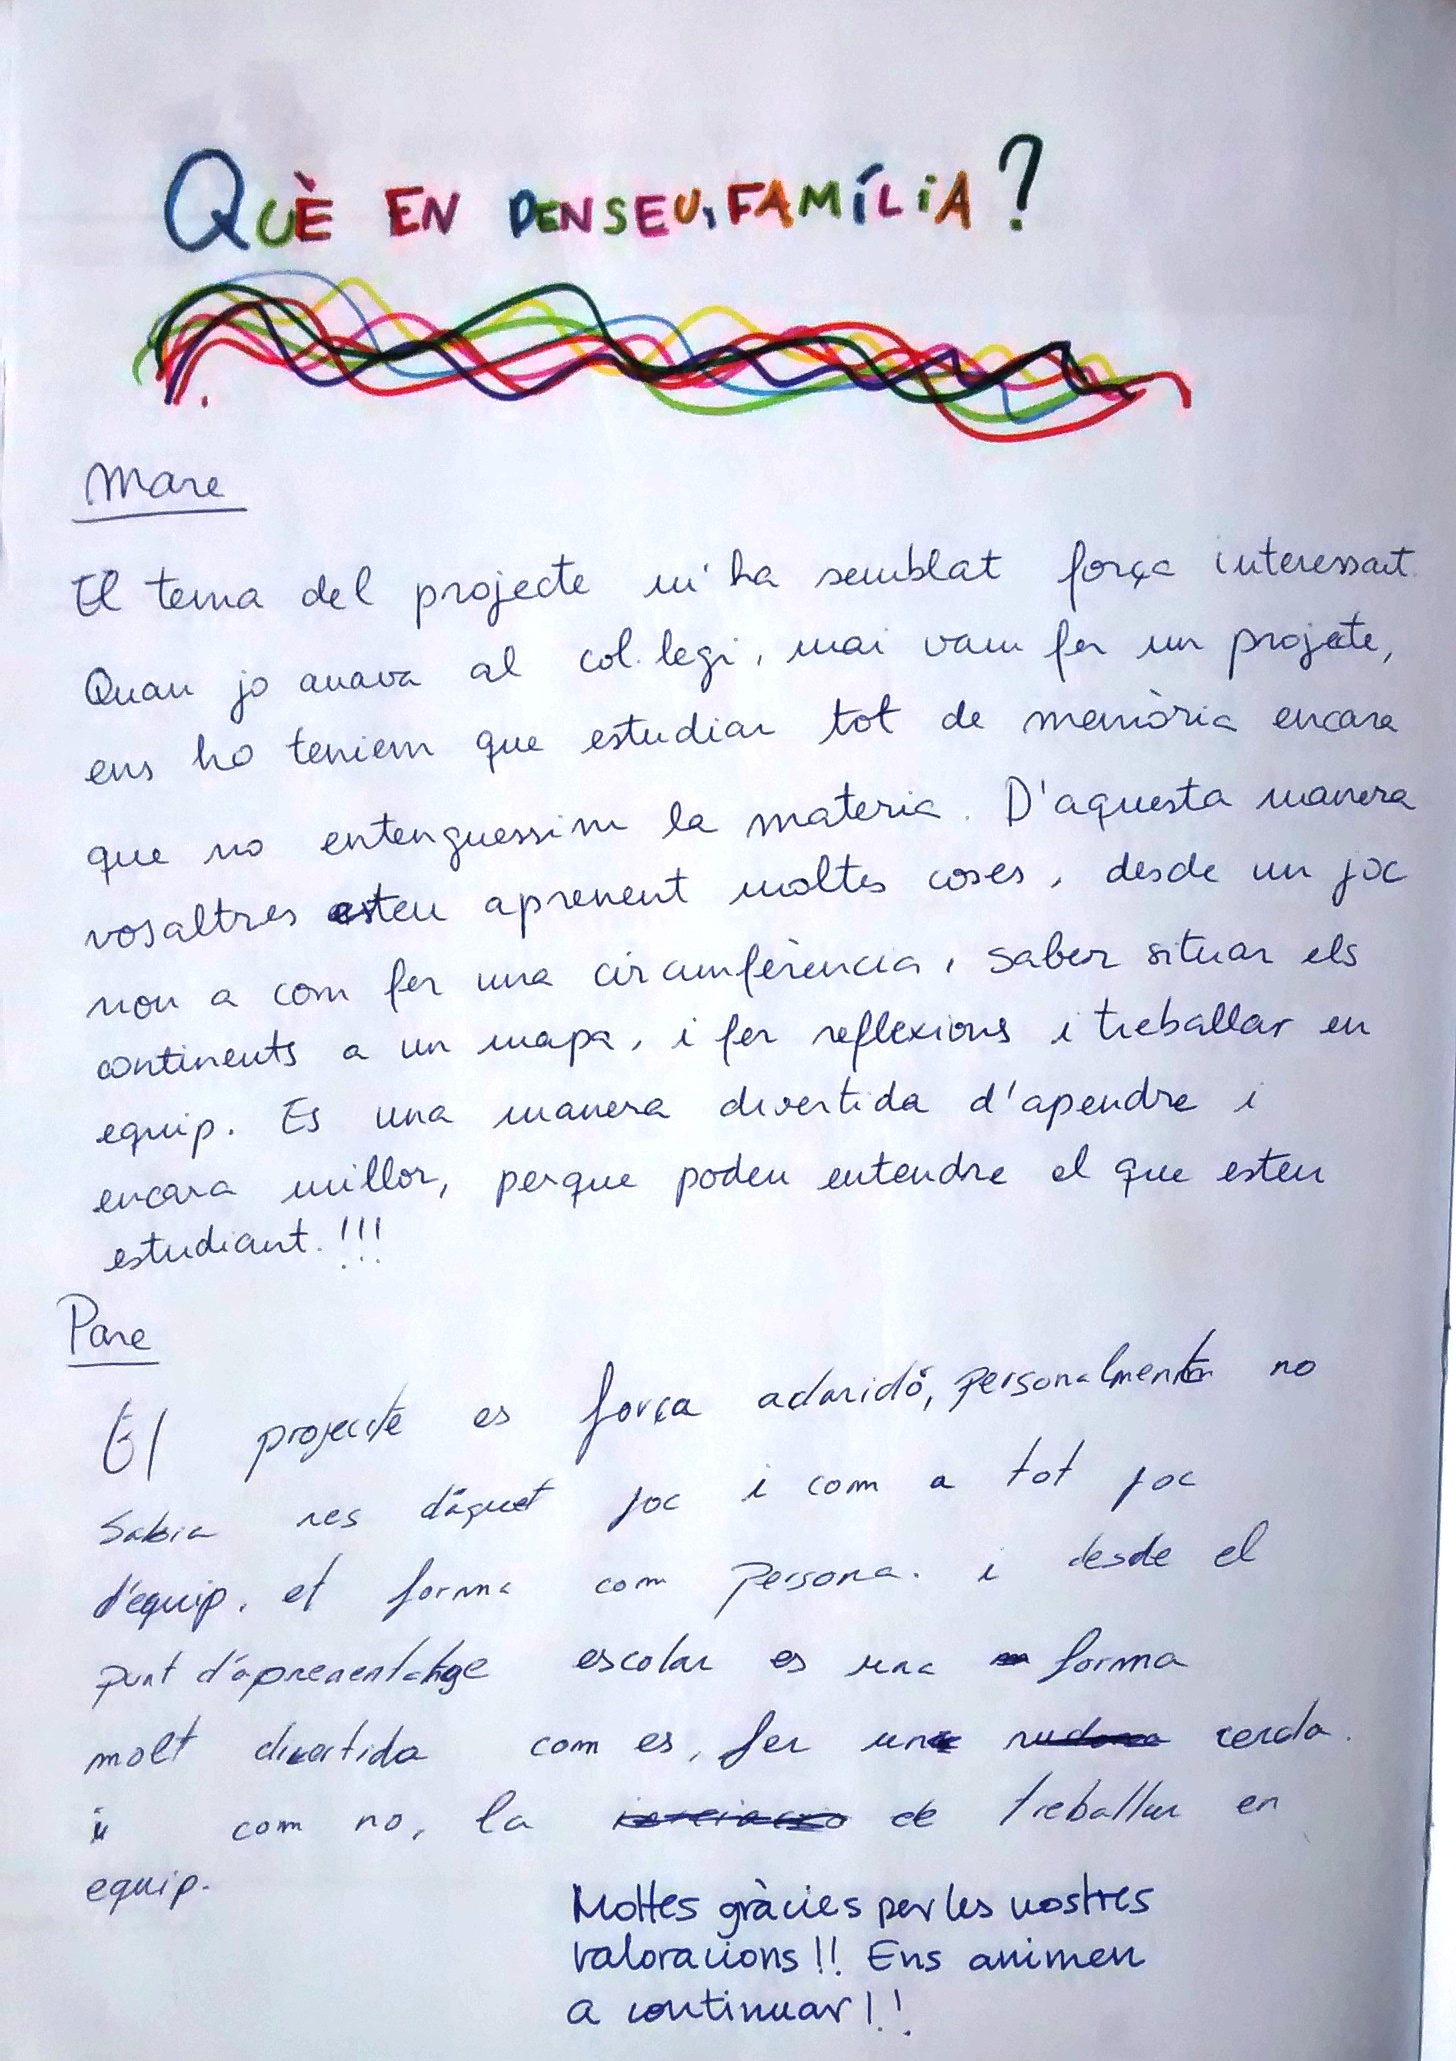 QUÈ EN PENSEU, FAMÍLIA?
Mare
El tema del projecte m'ha semblat força interessant.
Quan jo anava al col.legi, mai vam fer un projecte,
ens ho teniem que estudiar tot de memòria encara
que no entenguessim la materia. D'aquesta manera
vosaltres esteu aprenent moltes coses, desde un joc
nou a com fer una circumferència, saber situar els
continents a un mapa, i fer reflexions i treballar en
equip. Es una manera divertida d'apendre i
encara millor, perque podeu entendre el que esteu
estudiant.!!!
Pare
El projecte es força personalment no
Sabia res d'aquet joc i com a tot joc
d'equip, et forma com persona. i desde el
punt escolar es una forma
molt divertida com es, fer un cercla.
i com no, la de treballar en
equip.
Moltes gràcies per les vostres
valoracions!! Ens animen
a continuar!!